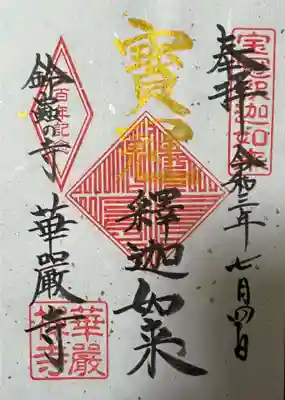 奉拝
令和三年七月四日
寳冠
釋迦如来
鈴蟲の寺
華嚴寺
宝冠釈迦如来
百年記念
華嚴禅寺